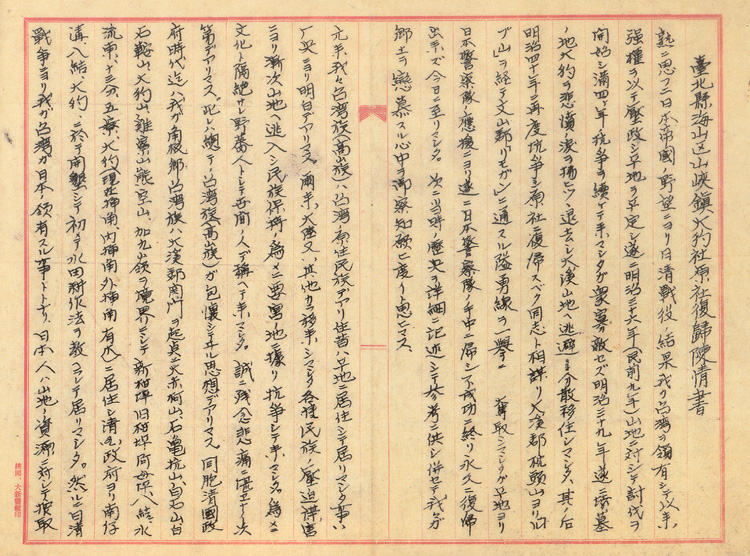 臺北縣海山区山峽鎮大豹社原社復歸陳情書
熟ニ思フニ日本帝國ノ野望ニヨリ日清戰役ノ結果我ガ台湾ヲ領有シテ以来
強權ヲ以テ壓政シ平地ヲ平定シ遂ニ明治三十六年(民前九年)山地ニ対シテ討伐ヲ
開始シ満四ヶ年抗争ヲ續ケテ来マシタガ衆寡敵セズ明治三十九年遂ニ墳墓
ノ地大豹ヲ悲憤ノ涙ヲ揮ヒツヽ退去シ大溪山地ヘ逃避シ分散移住シマシタ、其ノ后
明治四十年ニ再度抗争シ原社ニ復帰スベク同志ト相謀リ大溪郡枕頭山ヨリ
山ヲ経テ文山郡「リモガン」ニ通スル隘勇線ヲ一挙ニ奪取シマシタガ平地ヨリ
日本警察隊ノ應援ニヨリ遂ニ日本警察隊ノ手中ニ帰シ不成功ニ終リ永久ニ復帰
出来ズ今日ニ至リマシタ。次ニ当時ノ歴史ヲ詳細ニ記述シテ参考ニ供シ併セテ我々ガ
郷土ヲ戀慕スル心中ヲ御察知願ヒ度イト思ヒマス。
元来我々台湾族(高山族)ハ台湾ノ原住民族デアリ往昔ハ平地ニ居住シテ居リマシタ事ハ
歴史ニヨリ明白デアリマス。爾来大陸又ハ其他カラ移来シマシタ各種民族ノ壓迫
ニヨリ漸次山地ヘ逃入シ民族保持ノ為メニ要害ノ地ニ據リ抗争シテ来マシタ。為メニ
文化ト隔絶サレ野蕃人トシテ世間ノ人デ稱ヘテ来マシタ。誠ニ残念悲痛ニ堪エナイ次
第デアリマス。此レハ總テノ台湾族(高山族)ガ包懐シテヰル思想デアリマス。同胞清國政
府時代迄ハ我ガ南級郷台湾族ハ大溪郡
石鞍山、大豹山、雞罩山、熊空山、加九嶺ヲ境界ニシテ新柑坪、旧柑坪
流東、十三分、五寮、大豹、現在挿南、内挿南、外挿南、有木ニ居住シ清國政府ヨリ南仔
溝、八結、大豹ニ於テ開墾シテ初テ水田耕作法ヲ教ヘラレテ居リマシタ。然ルニ日清
戰争ニヨリ我ガ台湾ガ日本ノ領有スル事トナリ、日本人ハ山地ノ資源ニ対シテ搾取